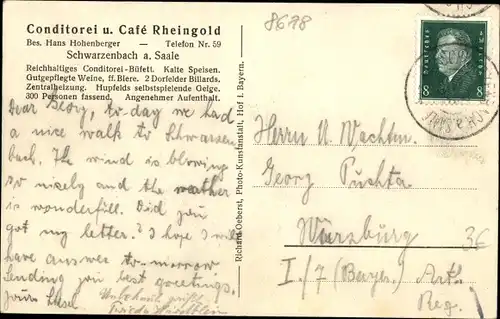 Conditorei u. Café Rheingold
Bes. Hans Hohenberger — Telefon Nr. 59
Schwarzenbach a. Saale
Reichhaltiges Conditorei-Büfett. Kalte Speisen.
Gutgepflegte Weine, ff. Biere. 2 Dorfelder Billards.
Zentralheizung. Hupfelds selbstspielende Geige.
300 Personen fassend. Angenehmer Aufenthalt.
Dear Georg, to-day we had
a nice walk to Schwarzen-
bach. The wind is blowing
so nicely and the weather
is wonderfull. Did you
got my letter? I hope I will
have answer to-morrow
Sending you best greetings.
Yours Liesel
Unbekannt grüßt
Richard Oeberst, Photo-Kunstanstalt, Hof i. Bayern.
8678
Deutsches Reich
8 8
Herrn U. Wachtm.
Georg Puchta
Würzburg
36
I./7 (Bayer.) Art.
Reg.